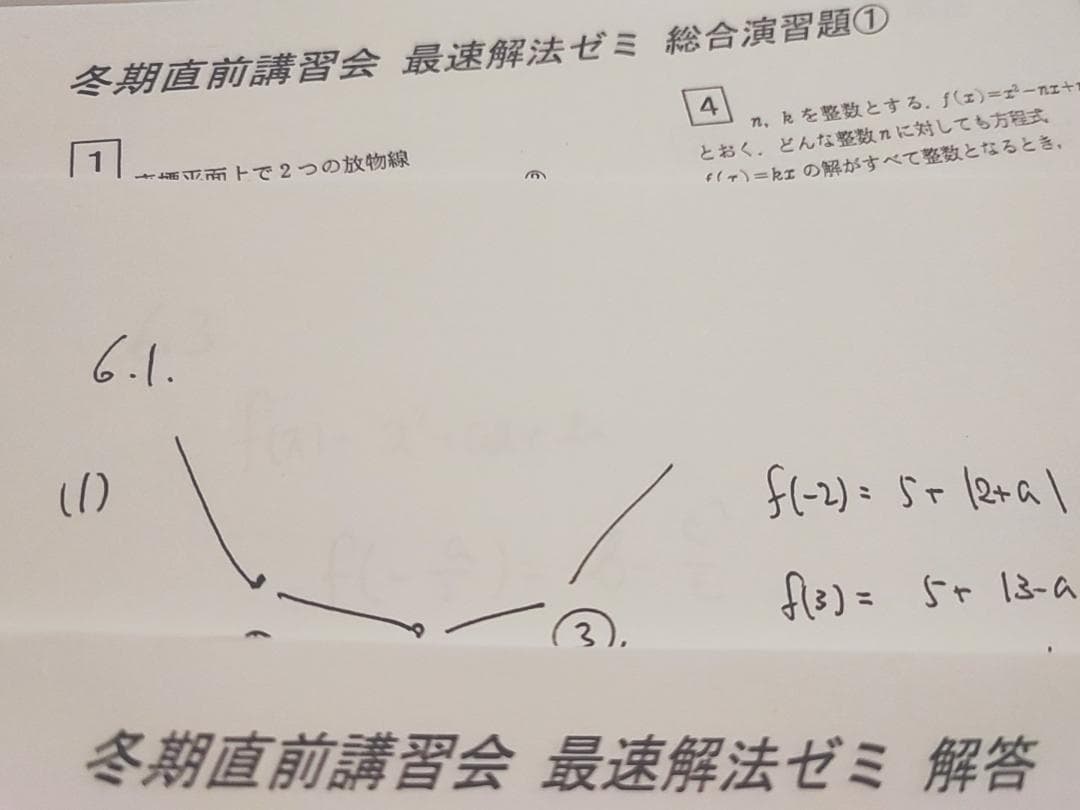 冬期直前講習会 最速解法ゼミ 総合演習題①
1
座標平面上で2つの放物線
4
n, k を整数とする. f(x)=x²-nx+
とおく. どんな整数nに対しても方程式
f(x)=kx の解がすべて整数となるとき,
6.1.
(1)
f(-2)= 5+ |2+a|
f(3)= 5+ |3-a
③.
冬期直前講習会 最速解法ゼミ 解答